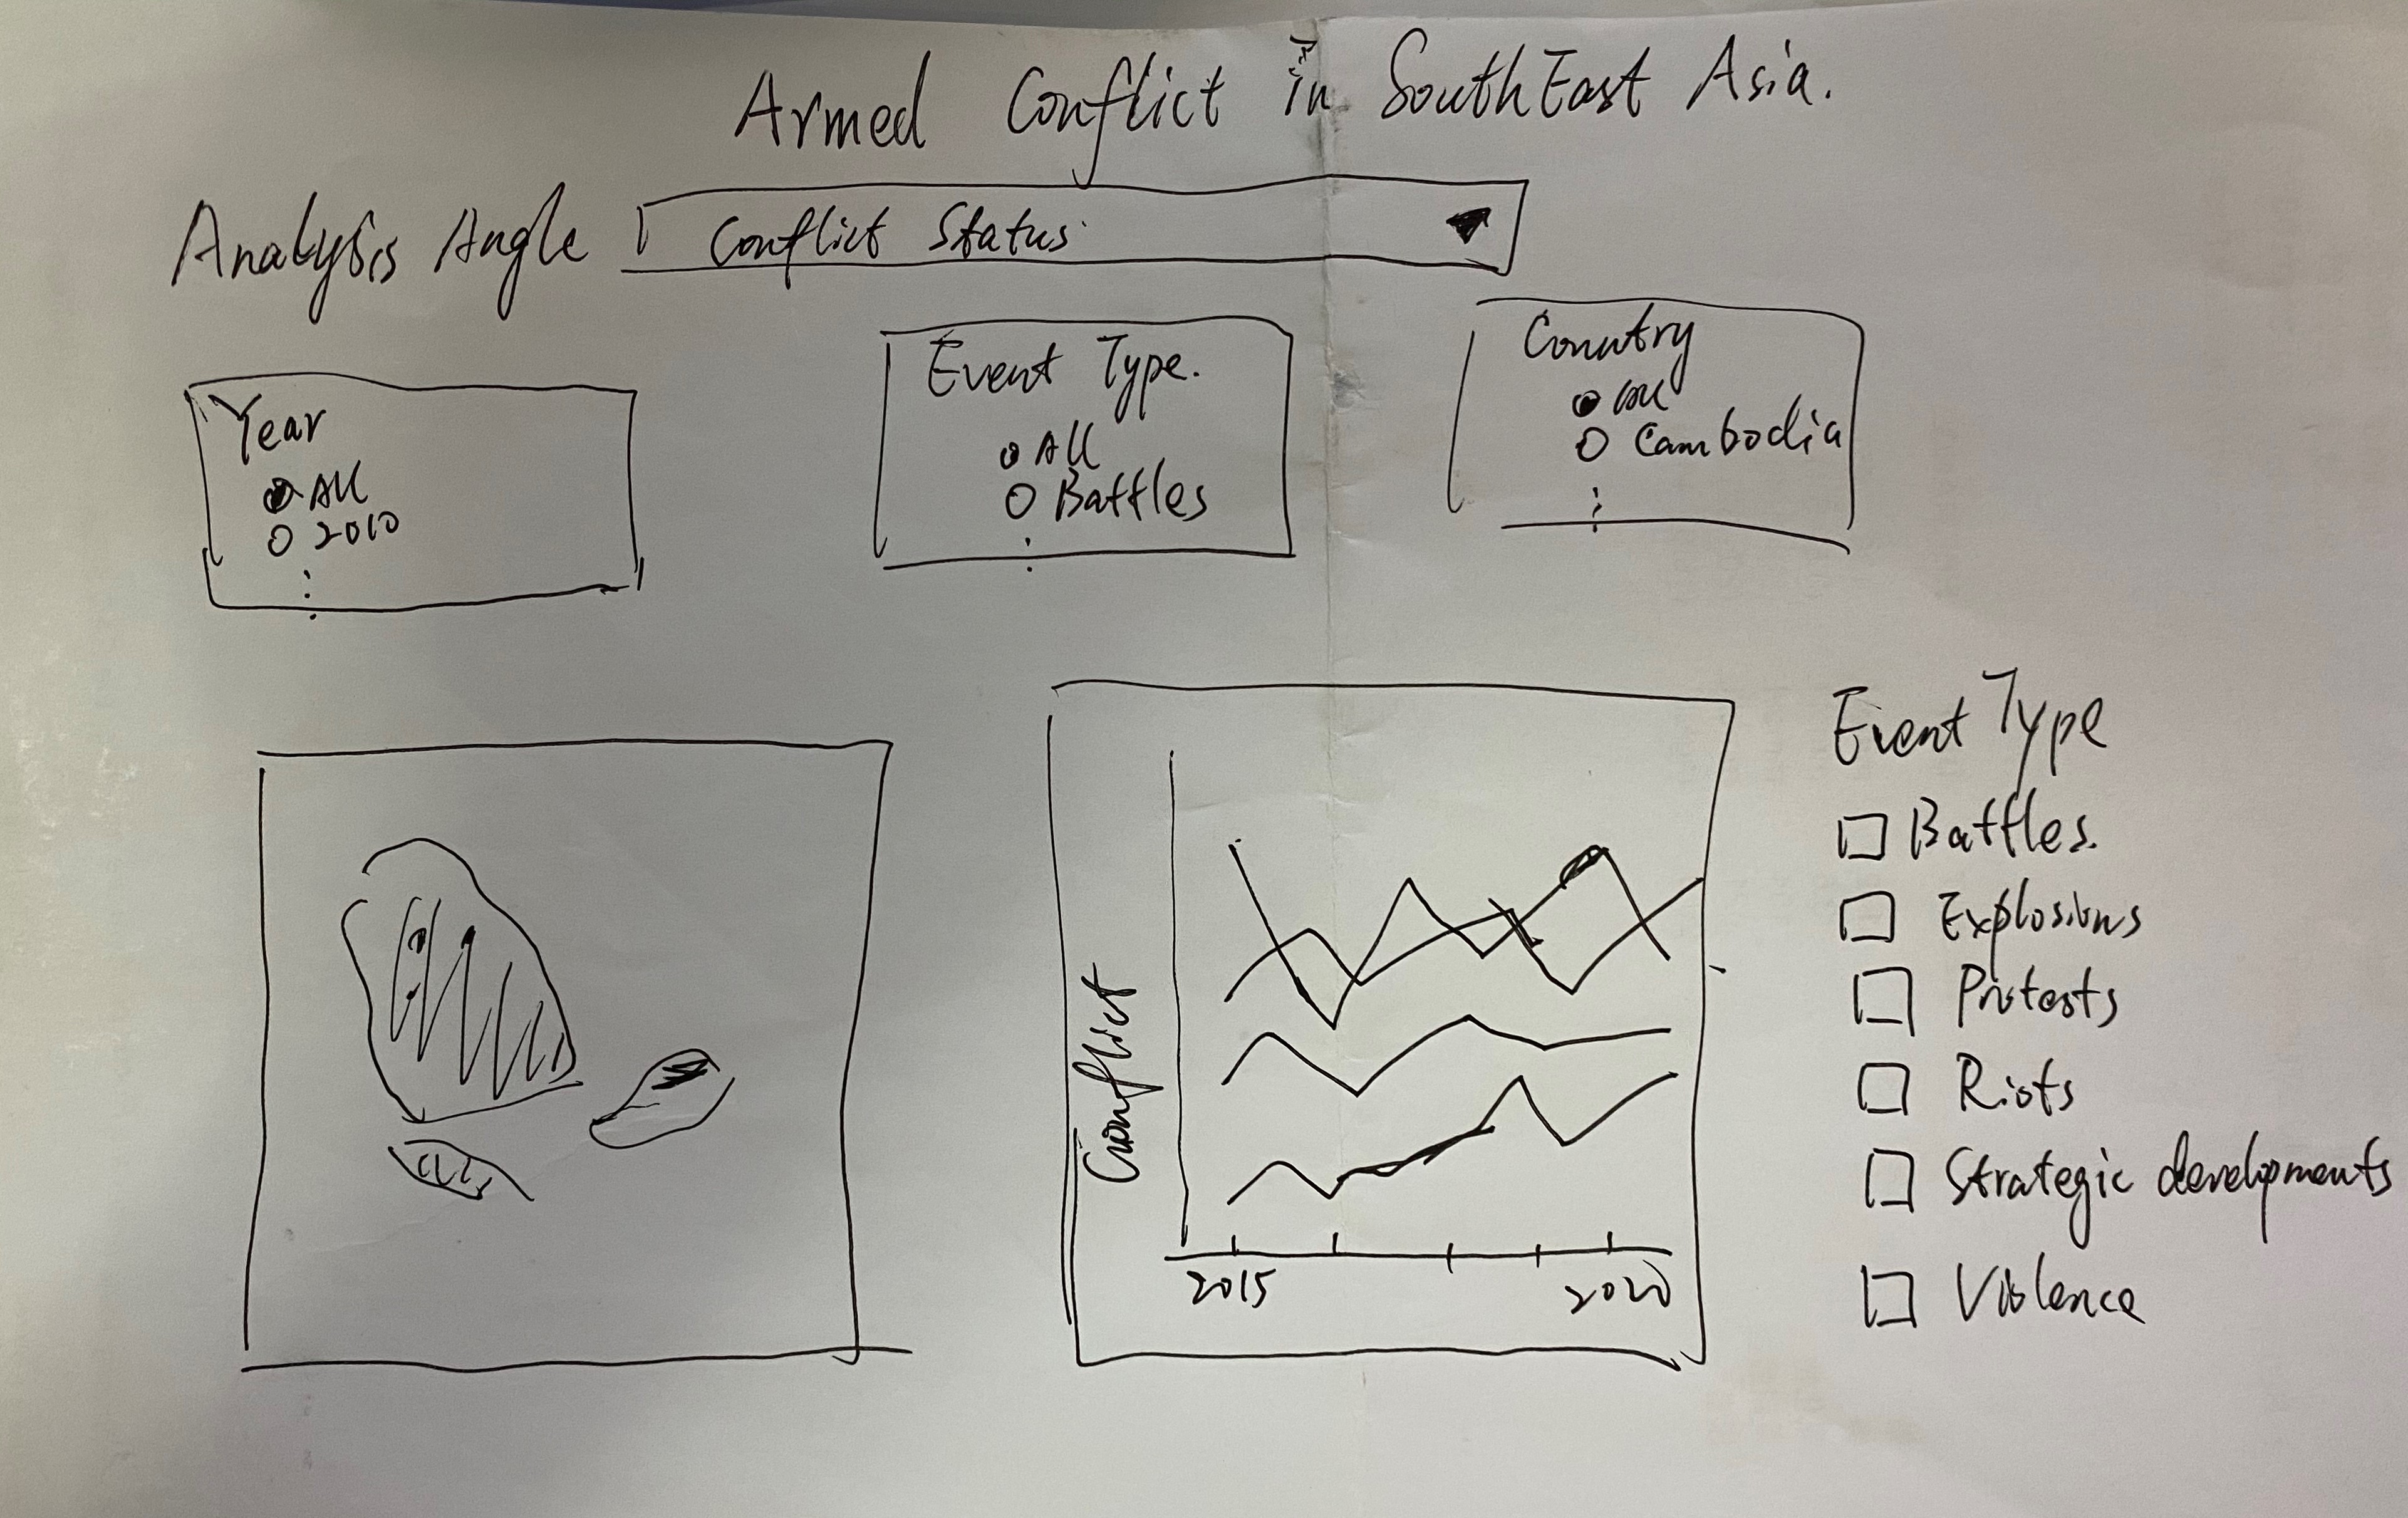 Armed Conflict in SouthEast Asia.
Analysis Angle Conflict Status
Year
All
2010
Event Type.
All
Battles
Country
All
Cambodia
Conflict
2015 2020
Event Type
Battles.
Explosions
Protests
Riots
Strategic developments
Violence